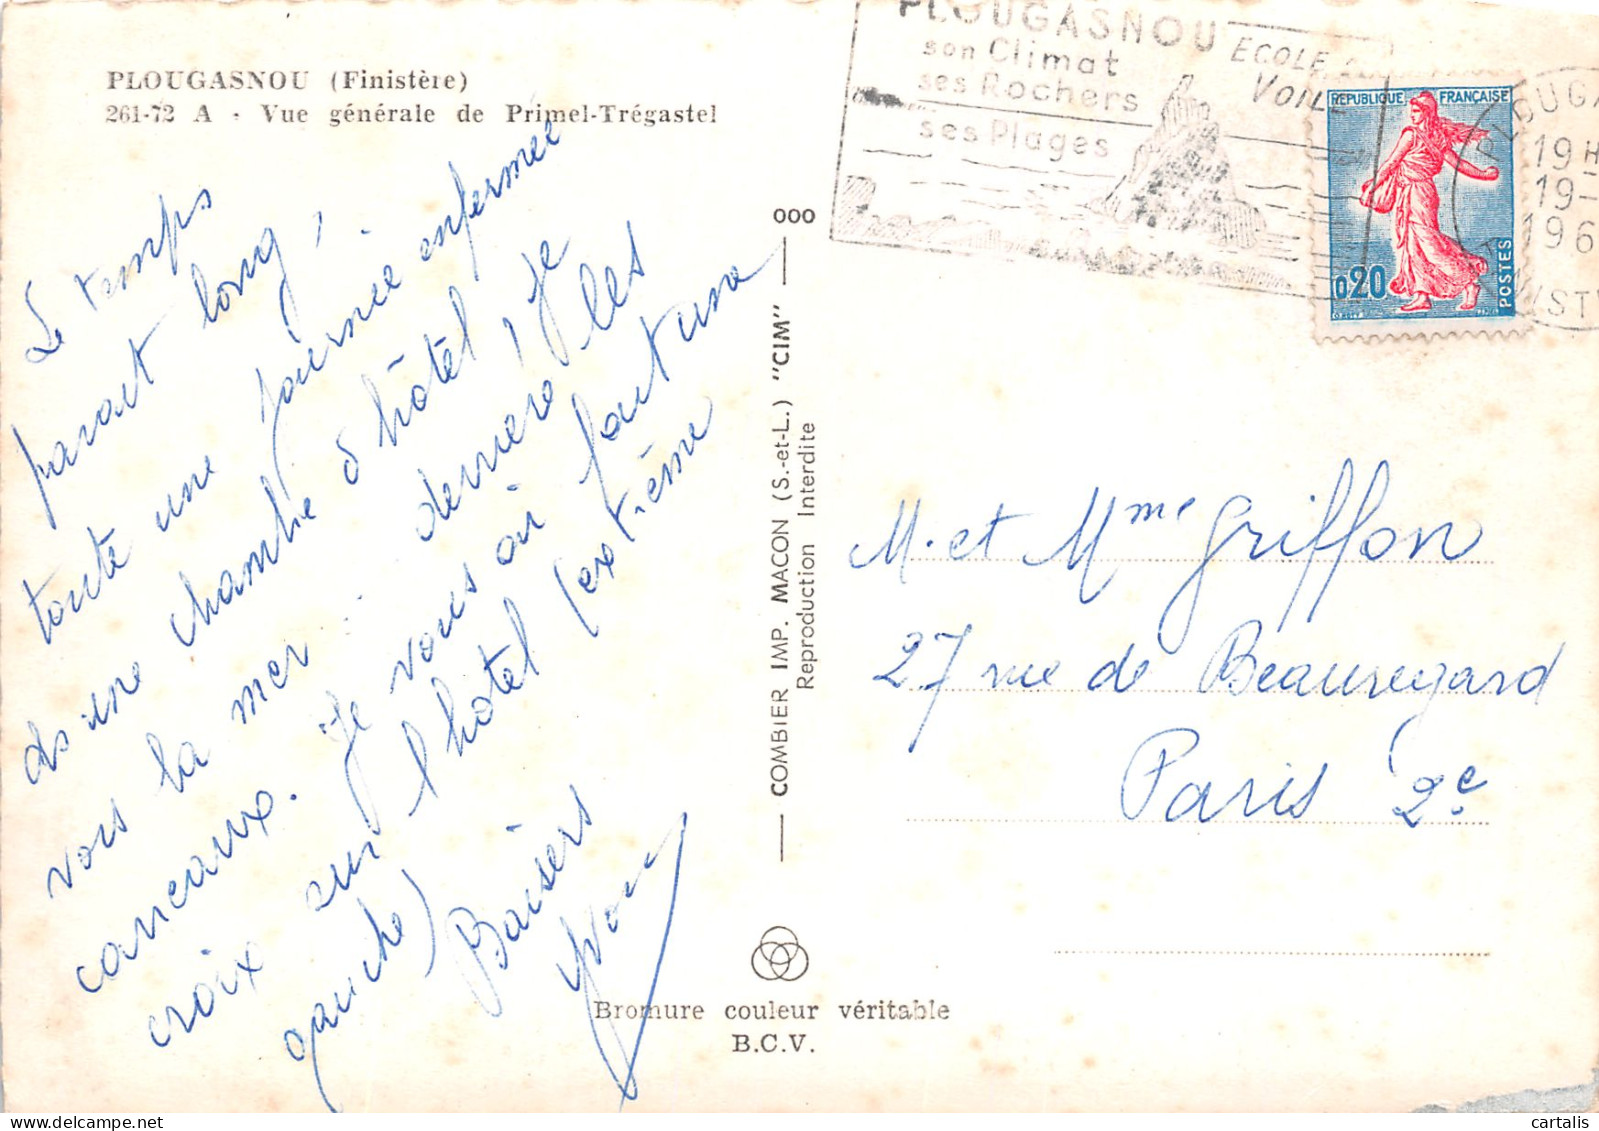 PLOUGASNOU (Finistère)
261-72 A - Vue générale de Primel-Trégastel
Le temps
parait long,
toute une journée enfermée
ds une chambre d'hôtel, je
vois la mer derrière les
carreaux. Je vous ai fait une
croix sur l'hôtel (extrême
gauche)
Baisers
Yvon
000
COMBIER IMP. MACON (S.-et-L.) "CIM"
Reproduction Interdite
Bromure couleur véritable
B.C.V.
PLOUGASNOU
son Climat
ses Rochers
ses Plages
ECOLE
VOILE
REPUBLIQUE FRANÇAISE
0,20
POSTES
PLOUGA
19 H
19-
196
M. et Mme Griffon
27 rue de Beauregard
Paris 2e
cartalis